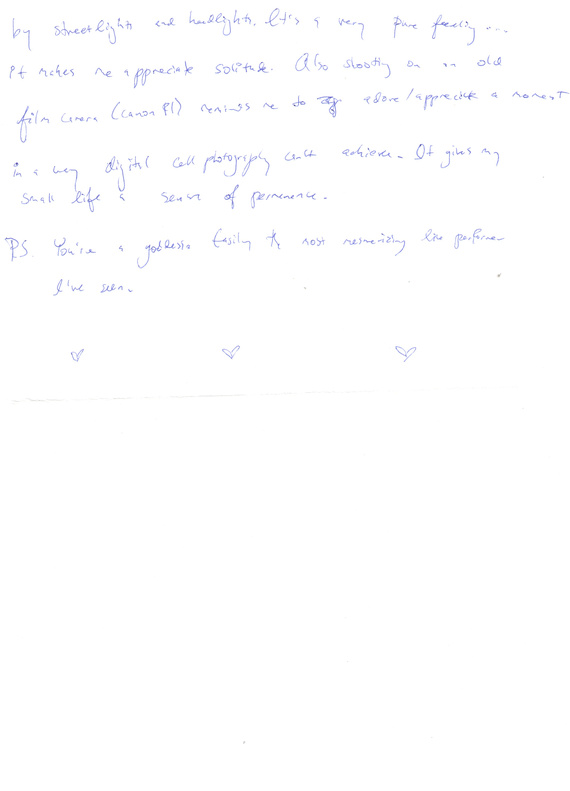 by streetlights and headlights. It's a very pure feeling...
it makes me appreciate solitude. Also shooting on an old
film camera (Canon P1) reminds me to adore/appreciate a moment
in a way digital cell photography can't achieve. It gives my
small life a sense of permanence.
P.S. You're a goddess. Easily the most mesmerizing live performer
I've seen.